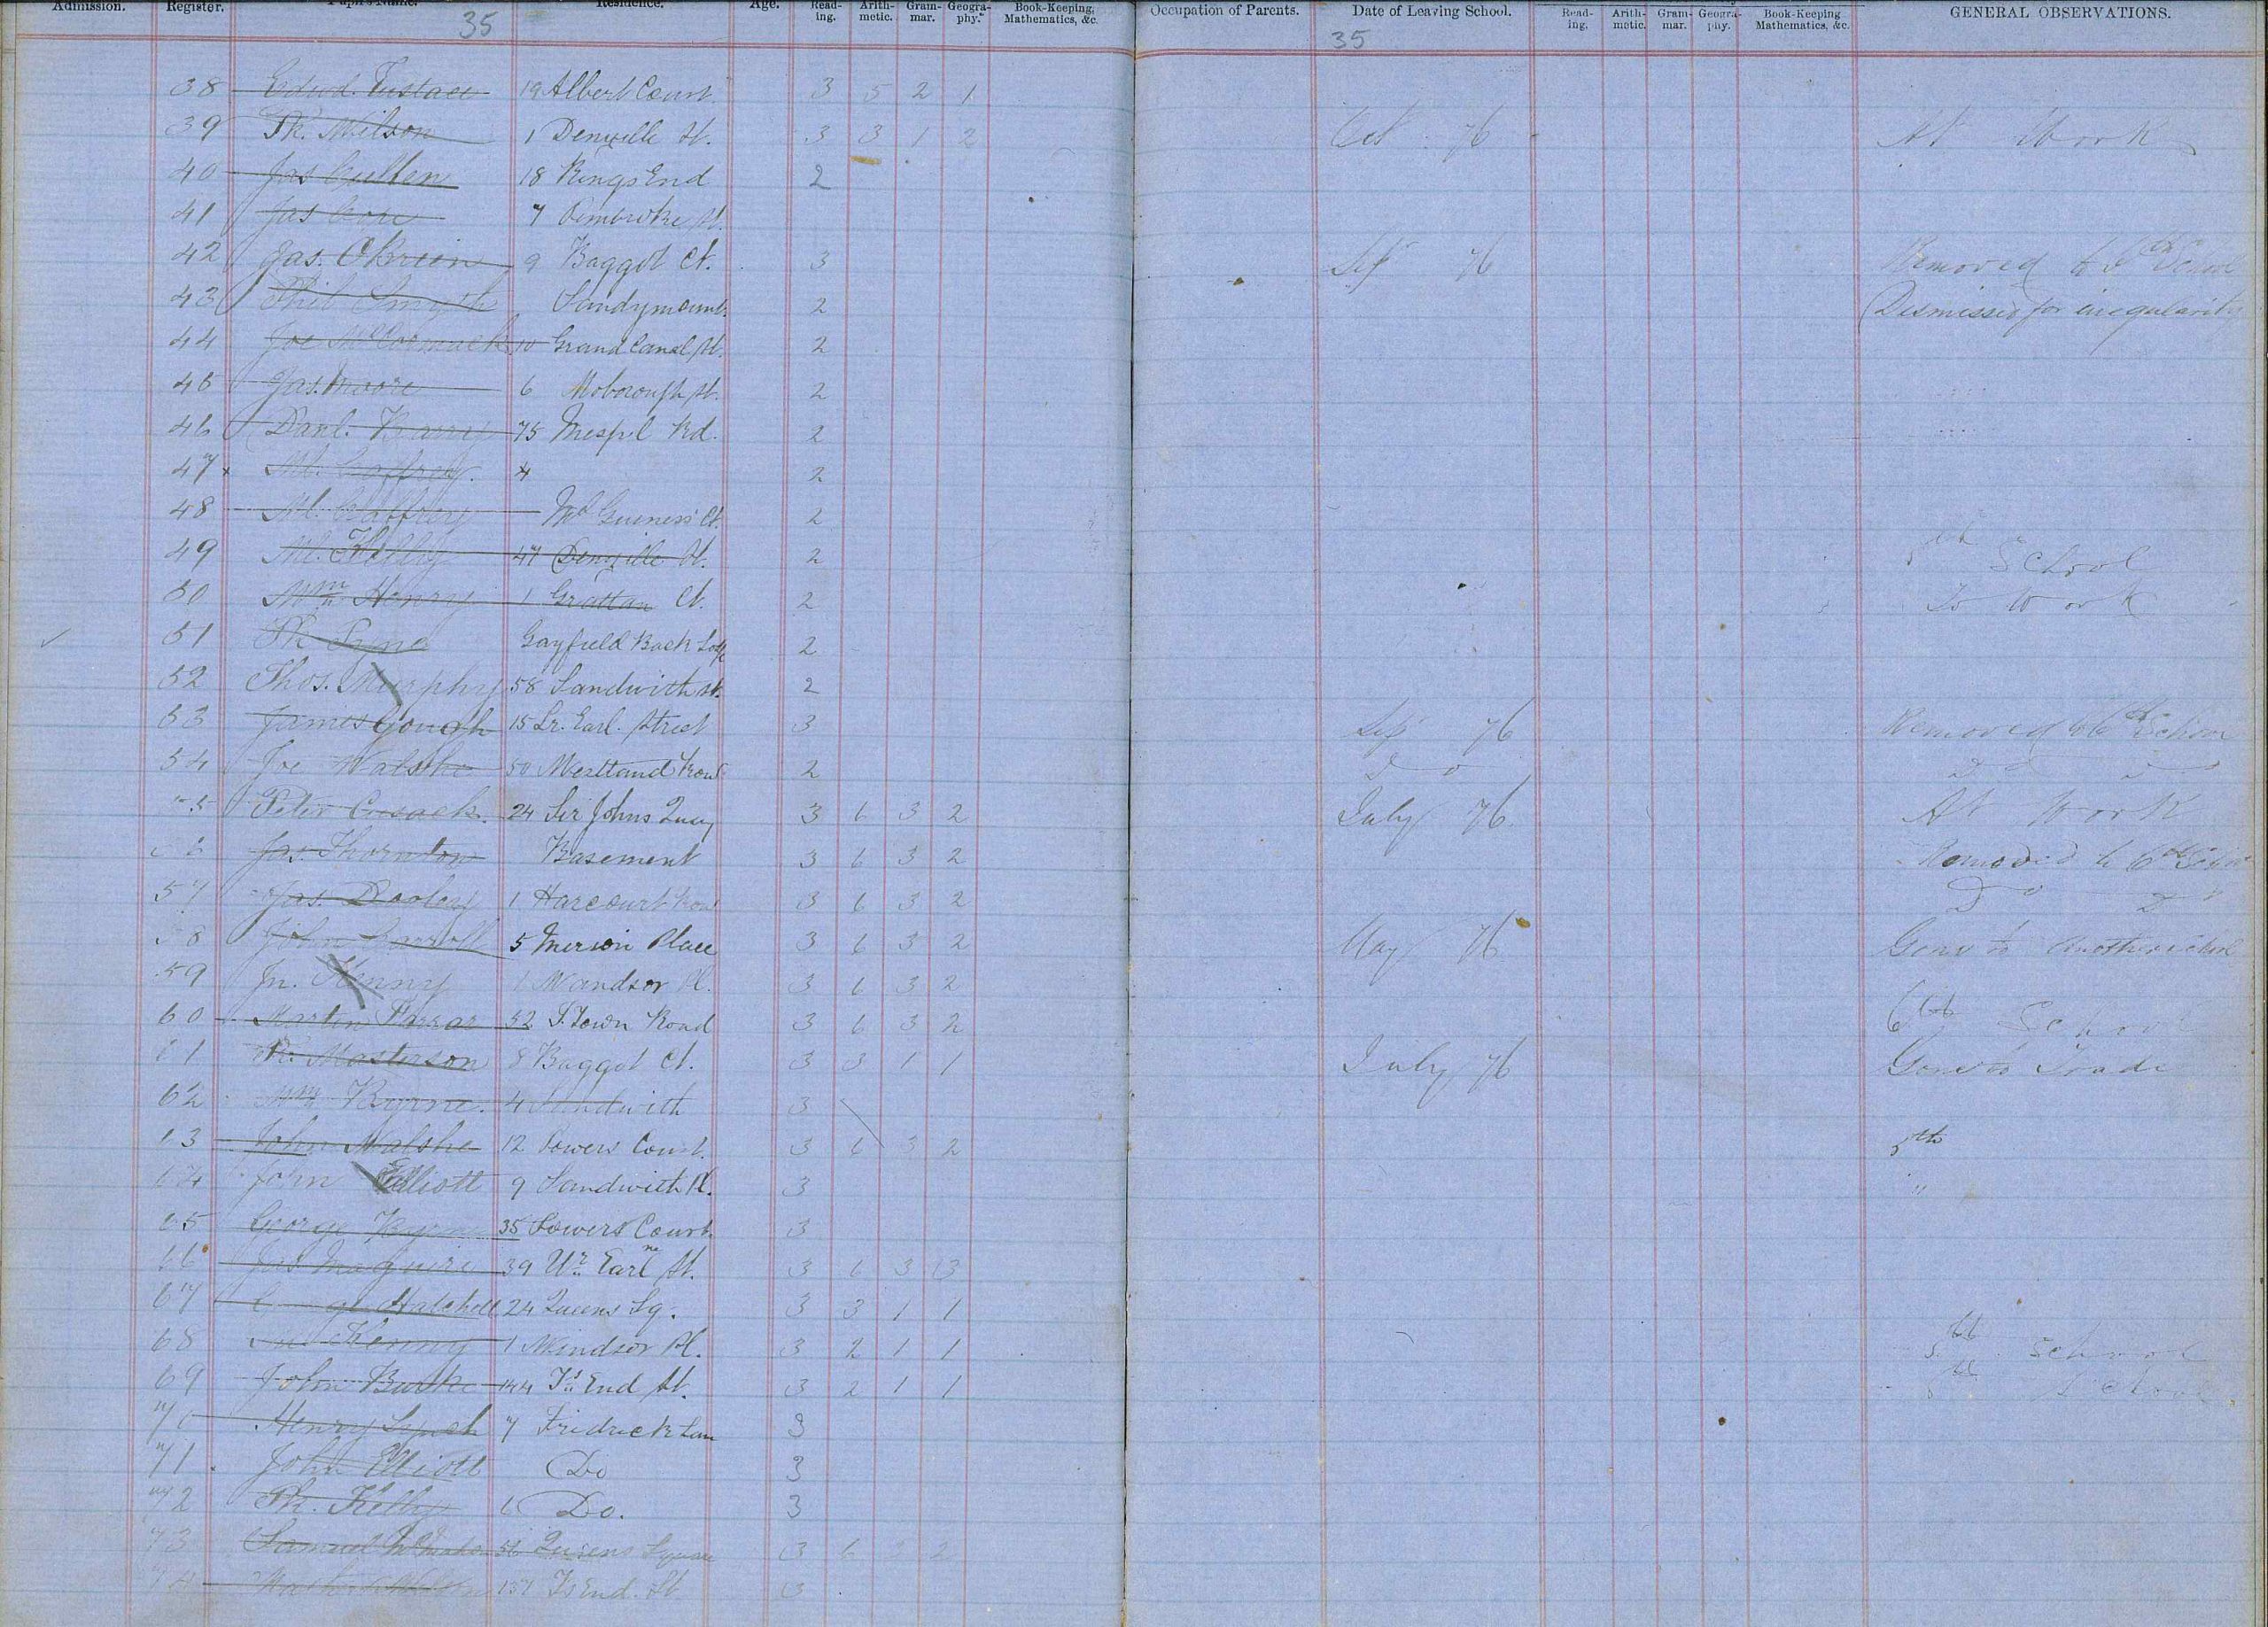 Admission. Register. Pupil's Name. Residence. Age. Read-ing. Arith-metic. Gram-mar. Geogra-phy. Book-Keeping, Mathematics, &c. Occupation of Parents. Date of Leaving School. Read-ing. Arith-metic. Gram-mar. Geogra-phy. Book-Keeping Mathematics, &c. GENERAL OBSERVATIONS.
35 35
38 Edwd. Eustace 19 Albert Court 3 5 2 1
39 Pk. Wilson 1 Denzille St. 3 3 1 2 Oct 76 At Work
40 Jas Cullen 18 RingsEnd 2
41 Jas 7 Pembroke St.
42 Jas. OBrien 9 Baggot Ct. 3 Sep 76 Removed to School
43 Phil Smyth Sandymount 2 Dismissed for irregularity
44 Joe McCormack 10 Grand Canal St. 2
45 Jas. Moore 6 St. 2
46 Danl. Barry 75 Mespil Rd. 2
47 x Ml. Caffrey. 4 2
48 Ml. Caffrey Mt Guiness Ct. 2
49 Ml. Kelly 47 Denzille St. 2 5th School
50 Wm Henry 1 Grattan Ct. 2 To Work
51 Pk Gayfield Back 2
52 Thos. Murphy 58 Sandwith St. 2
53 James Gough 15 Lr. Earl. Street 3 Sep 76 Removed to 6th School
54 Joe Walshe 50 Westland Row 2 Do Do Do
55 Peter Cusack. 24 Sir Johns Quay 3 6 3 2 July 76 At Work
56 Jas. Thornton Basement 3 6 3 2 Removed to 6th School
57 Jas. Dooley 1 Harcourt Row 3 6 3 2 Do Do
58 John Carroll 5 Merrion Place 3 6 3 2 May 76 Gone to another school
59 Jn. Kenny 1 Windsor Pl. 3 6 3 2
60 Martin 52 I. Town Road 3 6 3 2 6th School
61 Pk. Masterson 8 Baggot Ct. 3 3 1 1 July 76 Gone to Trade
62 Wm Byrne. 4 Sandwith 3
63 John Walshe 12 Powers Court. 3 6 3 2 5th
64 John Elliott 9 Sandwith Pl. 3 "
65 George Byrne 35 Powers Court. 3
66 Jas Maguire 39 Ur. Earl ne St. 3 6 3 3
67 24 Queens Sq. 3 3 1 1
68 Jn Kenny 1 Windsor Pl. 3 2 1 1 5th School
69 John Burke 144 Ts End St. 3 2 1 1 5th School
70 Henry Lynch 7 Fridrick Lane 3
71 John Elliott Do 3
72 Pk. Kelly 6 Do. 3
73 Samuel 56 Queens Square 3 6 3 2
74 137 Ts End. St 3